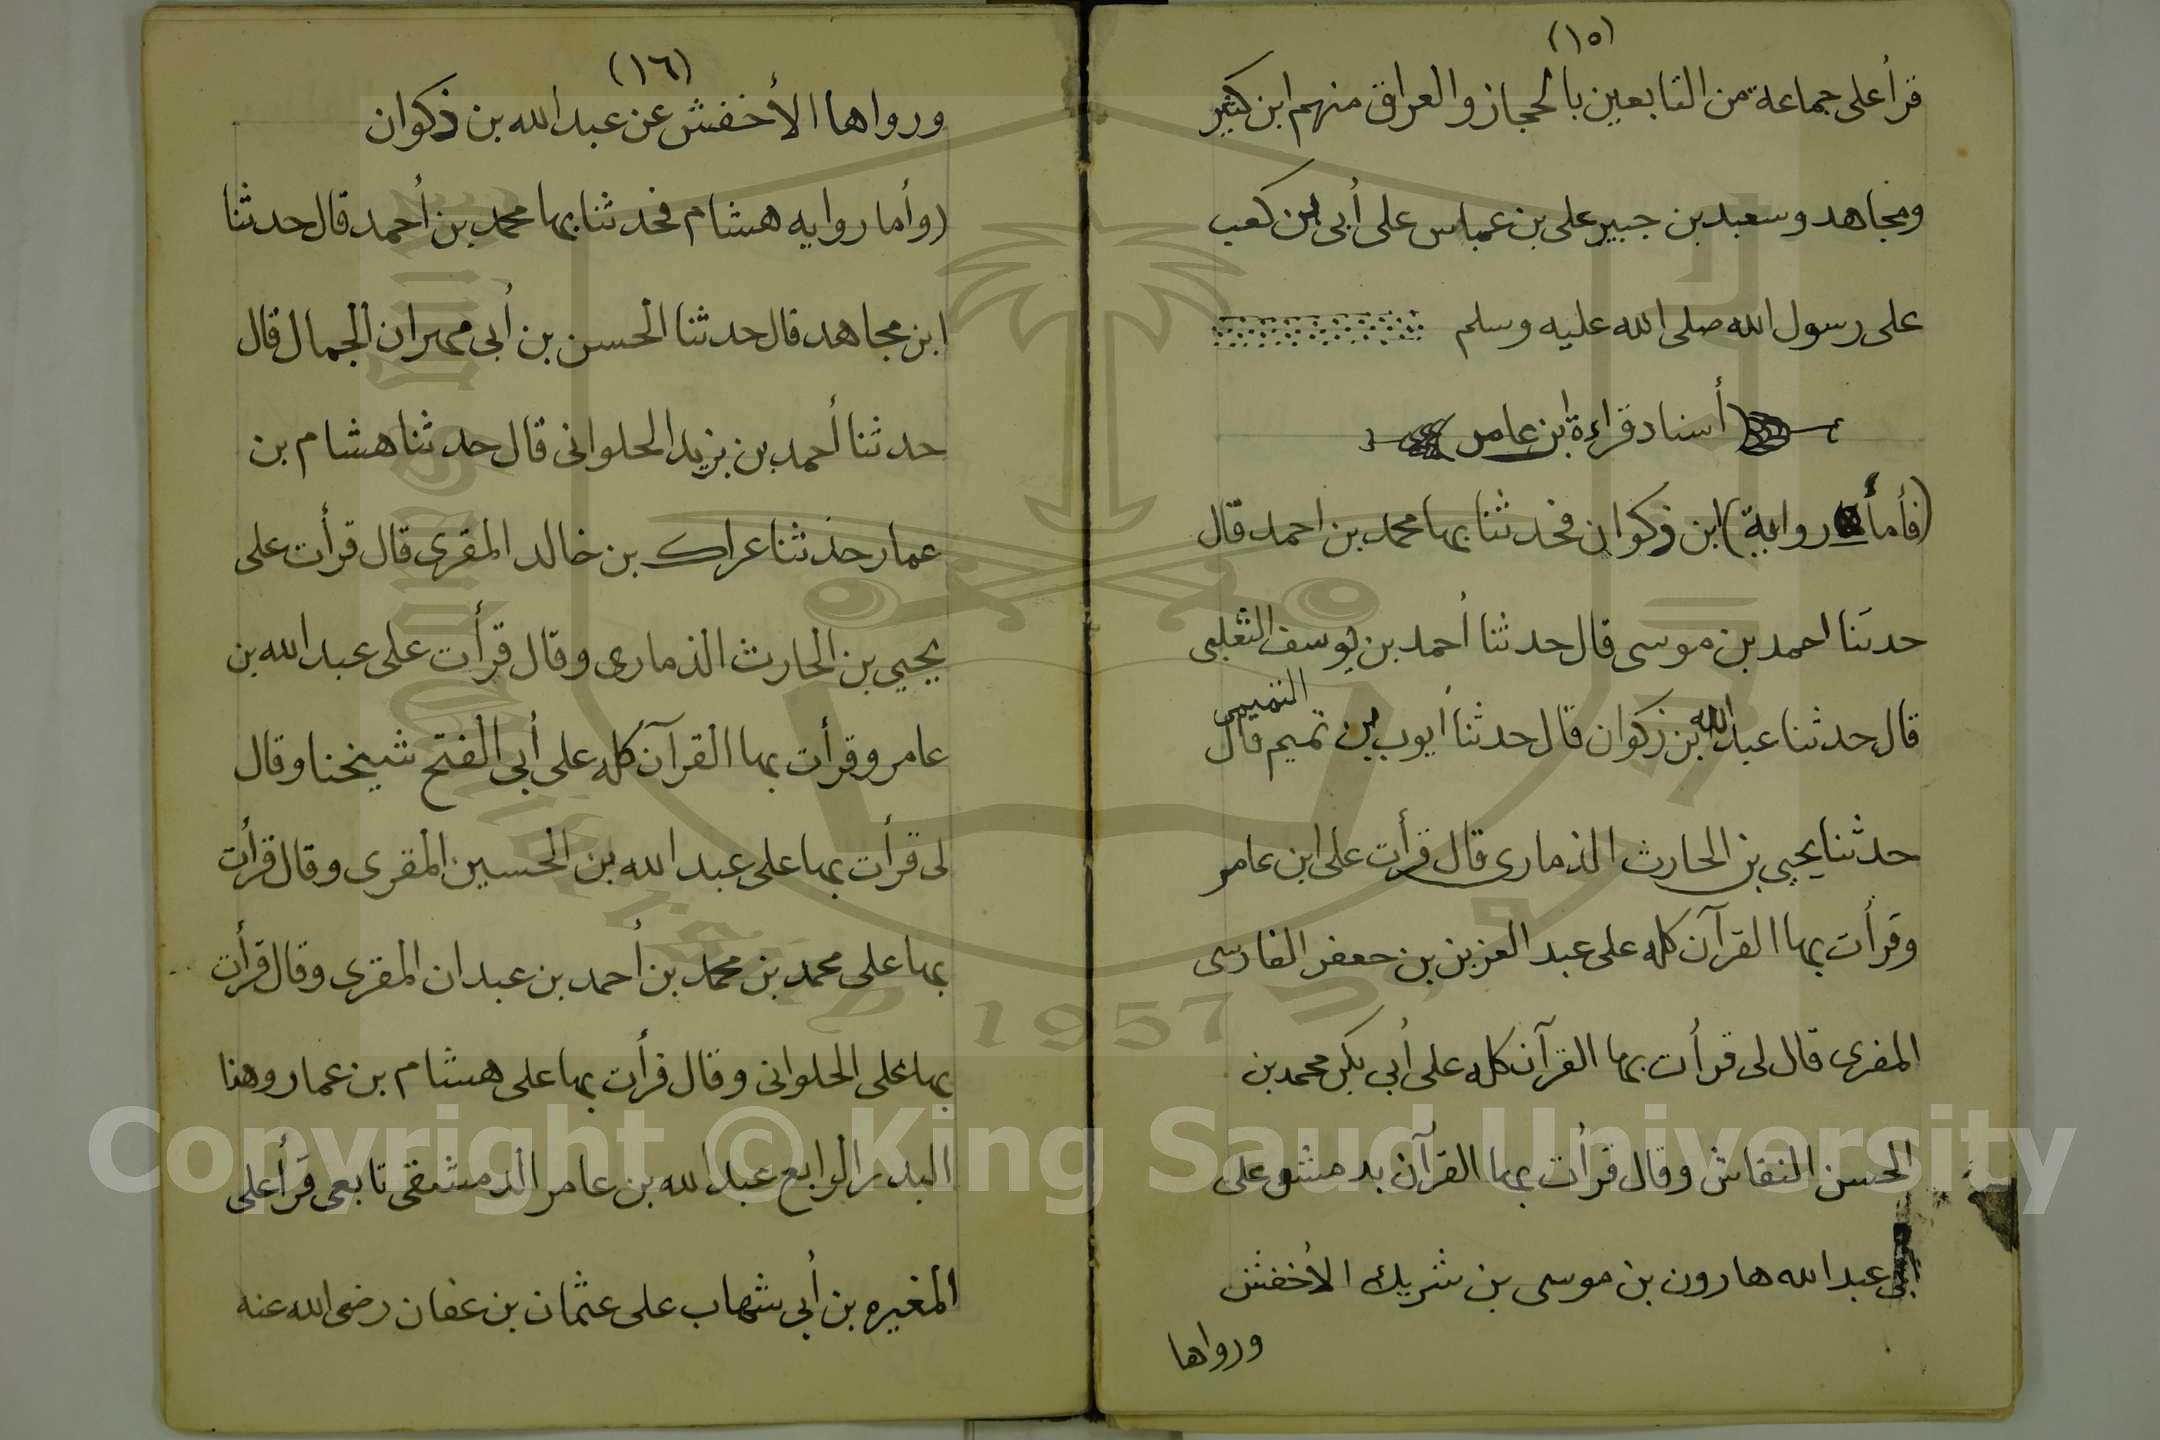 (١٥)
قرأ على جماعة من التابعين بالحجاز والعراق منهم ابن كثير
ومجاهد وسعيد بن جبير على بن عباس على أبى بن كعب
على رسول الله صلى الله عليه وسلم
أسناد قراءة ابن عامر
(فأما رواية) ابن ذكوان فحدثنا بها محمد بن احمد قال
حدثنا احمد بن موسى قال حدثنا أحمد بن يوسف الثعلبى
قال حدثنا عبد الله بن ذكوان قال حدثنا أيوب بن تميم التميمى قال
حدثنا يحيى بن الحارث الذمارى قال قرأت على ابن عامر
وقرأت بها القرآن كله على عبد العزيز بن جعفر الفارسى
المقرى قال لى قرأت بها القرآن كله على أبى بكر محمد بن
الحسن النقاش وقال قرأت بها القرآن بدمشق على
أبى عبد الله هارون بن موسى بن شريك الأخفش
ورواها
(١٦)
ورواها الأخفش عن عبد الله بن ذكوان
(وأما روايه هشام فحدثنا بها محمد بن أحمد قال حدثنا
ابن مجاهد قال حدثنا الحسن بن أبى مهران الجمال قال
حدثنا أحمد بن يزيد الحلوانى قال حدثنا هشام بن
عمار حدثنا عراك بن خالد المقرى قال قرأت على
يحيى بن الحارث الذمارى وقال قرأت على عبد الله بن
عامر وقرأت بها القرآن كله على أبى الفتح شيخنا وقال
لى قرأت بها على عبد الله بن الحسين المقرى وقال قرأت
بها على محمد بن محمد بن أحمد بن عبدان المقرى وقال قرأت
بها على الحلوانى وقال قرأت بها على هشام بن عمار وهذا
البدر الرابع عبد الله بن عامر الدمشقى تابعى قرأ على
المغيره بن أبى شهاب على عثمان بن عفان رضى الله عنه
1957
Copyright © King Saud University